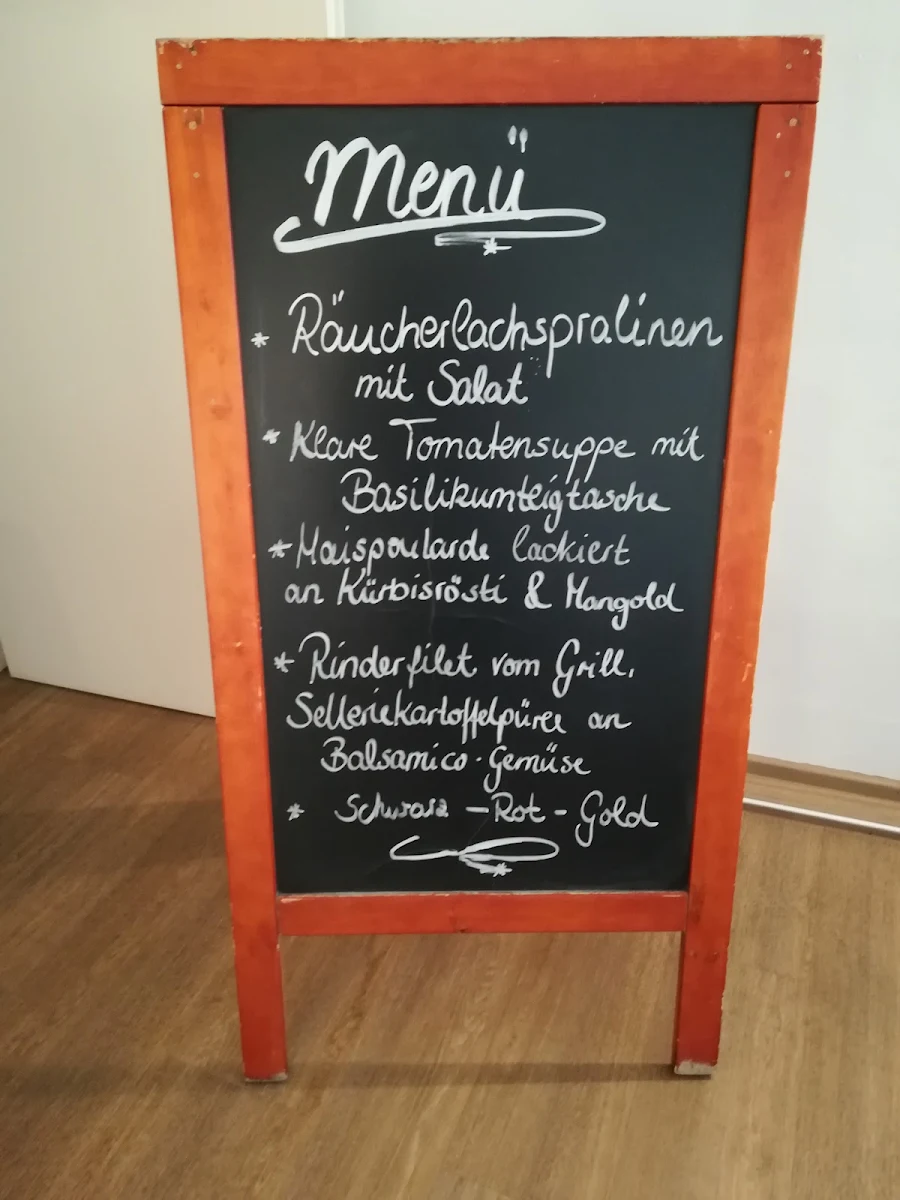 Menü
* Räucherlachspralinen
mit Salat
* Klare Tomatensuppe mit
Basilikumteigtasche
* Maispoularde lackiert
an Kürbisrösti & Mangold
* Rinderfilet vom Grill,
Selleriekartoffelpüree an
Balsamico-Gemüse
* Schwarz - Rot - Gold